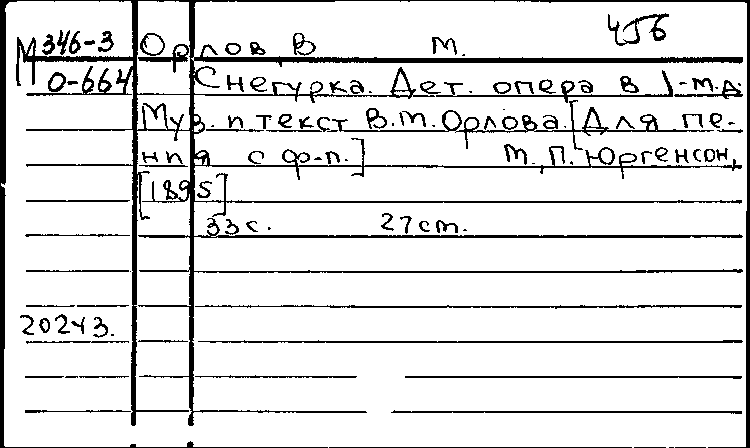 456
М 346-3 Орлов, В. М.
О-664 Снегурка. Дет. опера в 1-м д.
Муз. и текст В.М.Орлова. [Для пе-
ния с ф-п.] М., П. Юргенсон,
[1895]
33 с. 27 см.